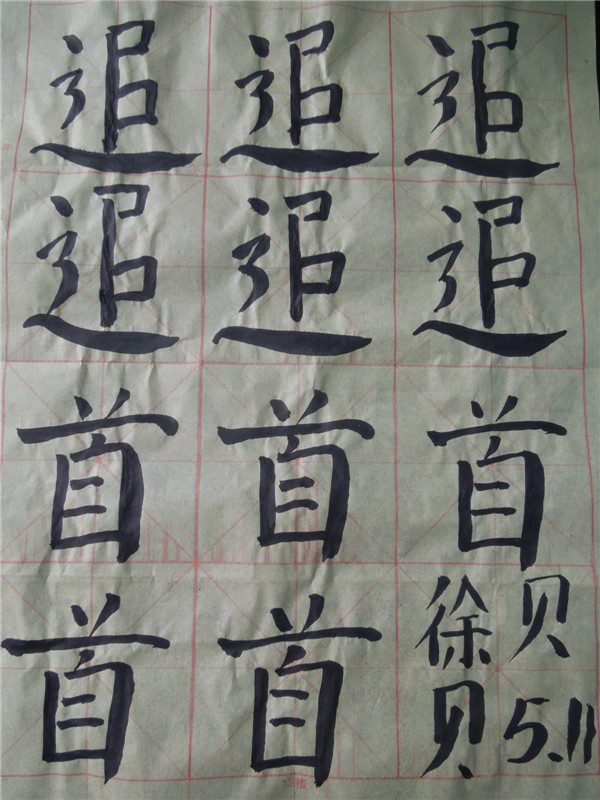 追追追
追追追
首首首
首首
徐贝
贝 5.11